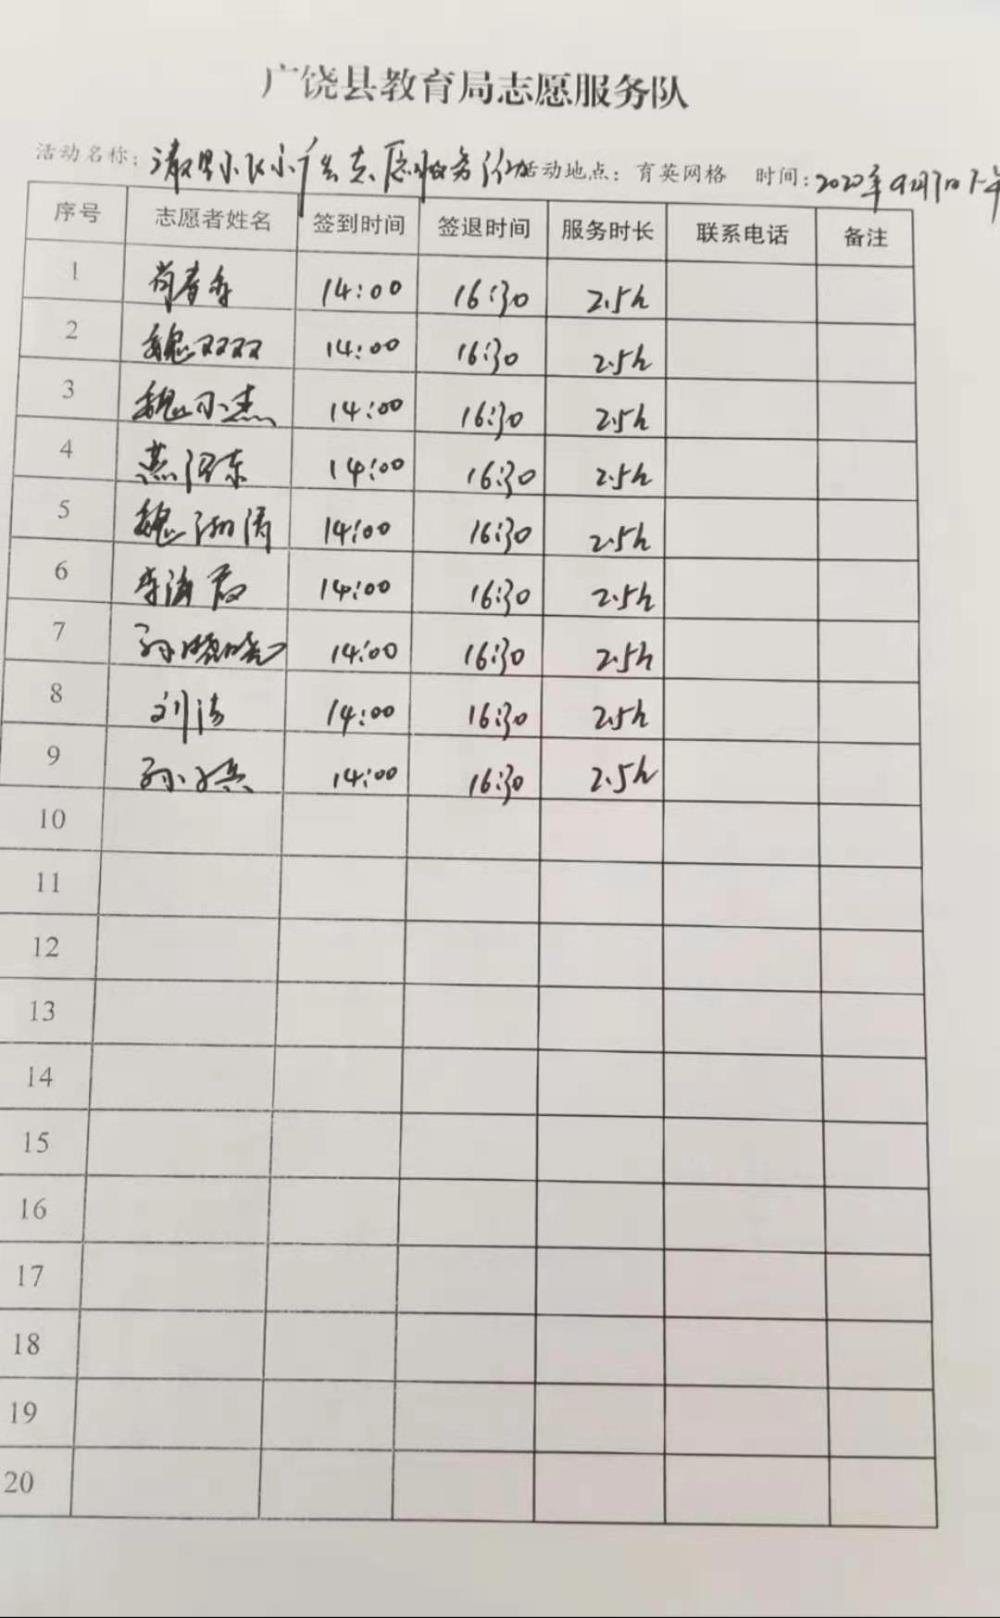 广饶县教育局志愿服务队
活动名称: 清理小区小广告志愿服务活动 活动地点: 育英网格 时间: 2022年9月7日下午
序号 志愿者姓名 签到时间 签退时间 服务时长 联系电话 备注
1 尚春香 14:00 16:30 2.5h
2 魏双双 14:00 16:30 2.5h
3 魏小杰 14:00 16:30 2.5h
4 燕泽东 14:00 16:30 2.5h
5 魏 14:00 16:30 2.5h
6 李 14:00 16:30 2.5h
7 孙晓晓 14:00 16:30 2.5h
8 刘洁 14:00 16:30 2.5h
9 孙 14:00 16:30 2.5h
10
11
12
13
14
15
16
17
18
19
20